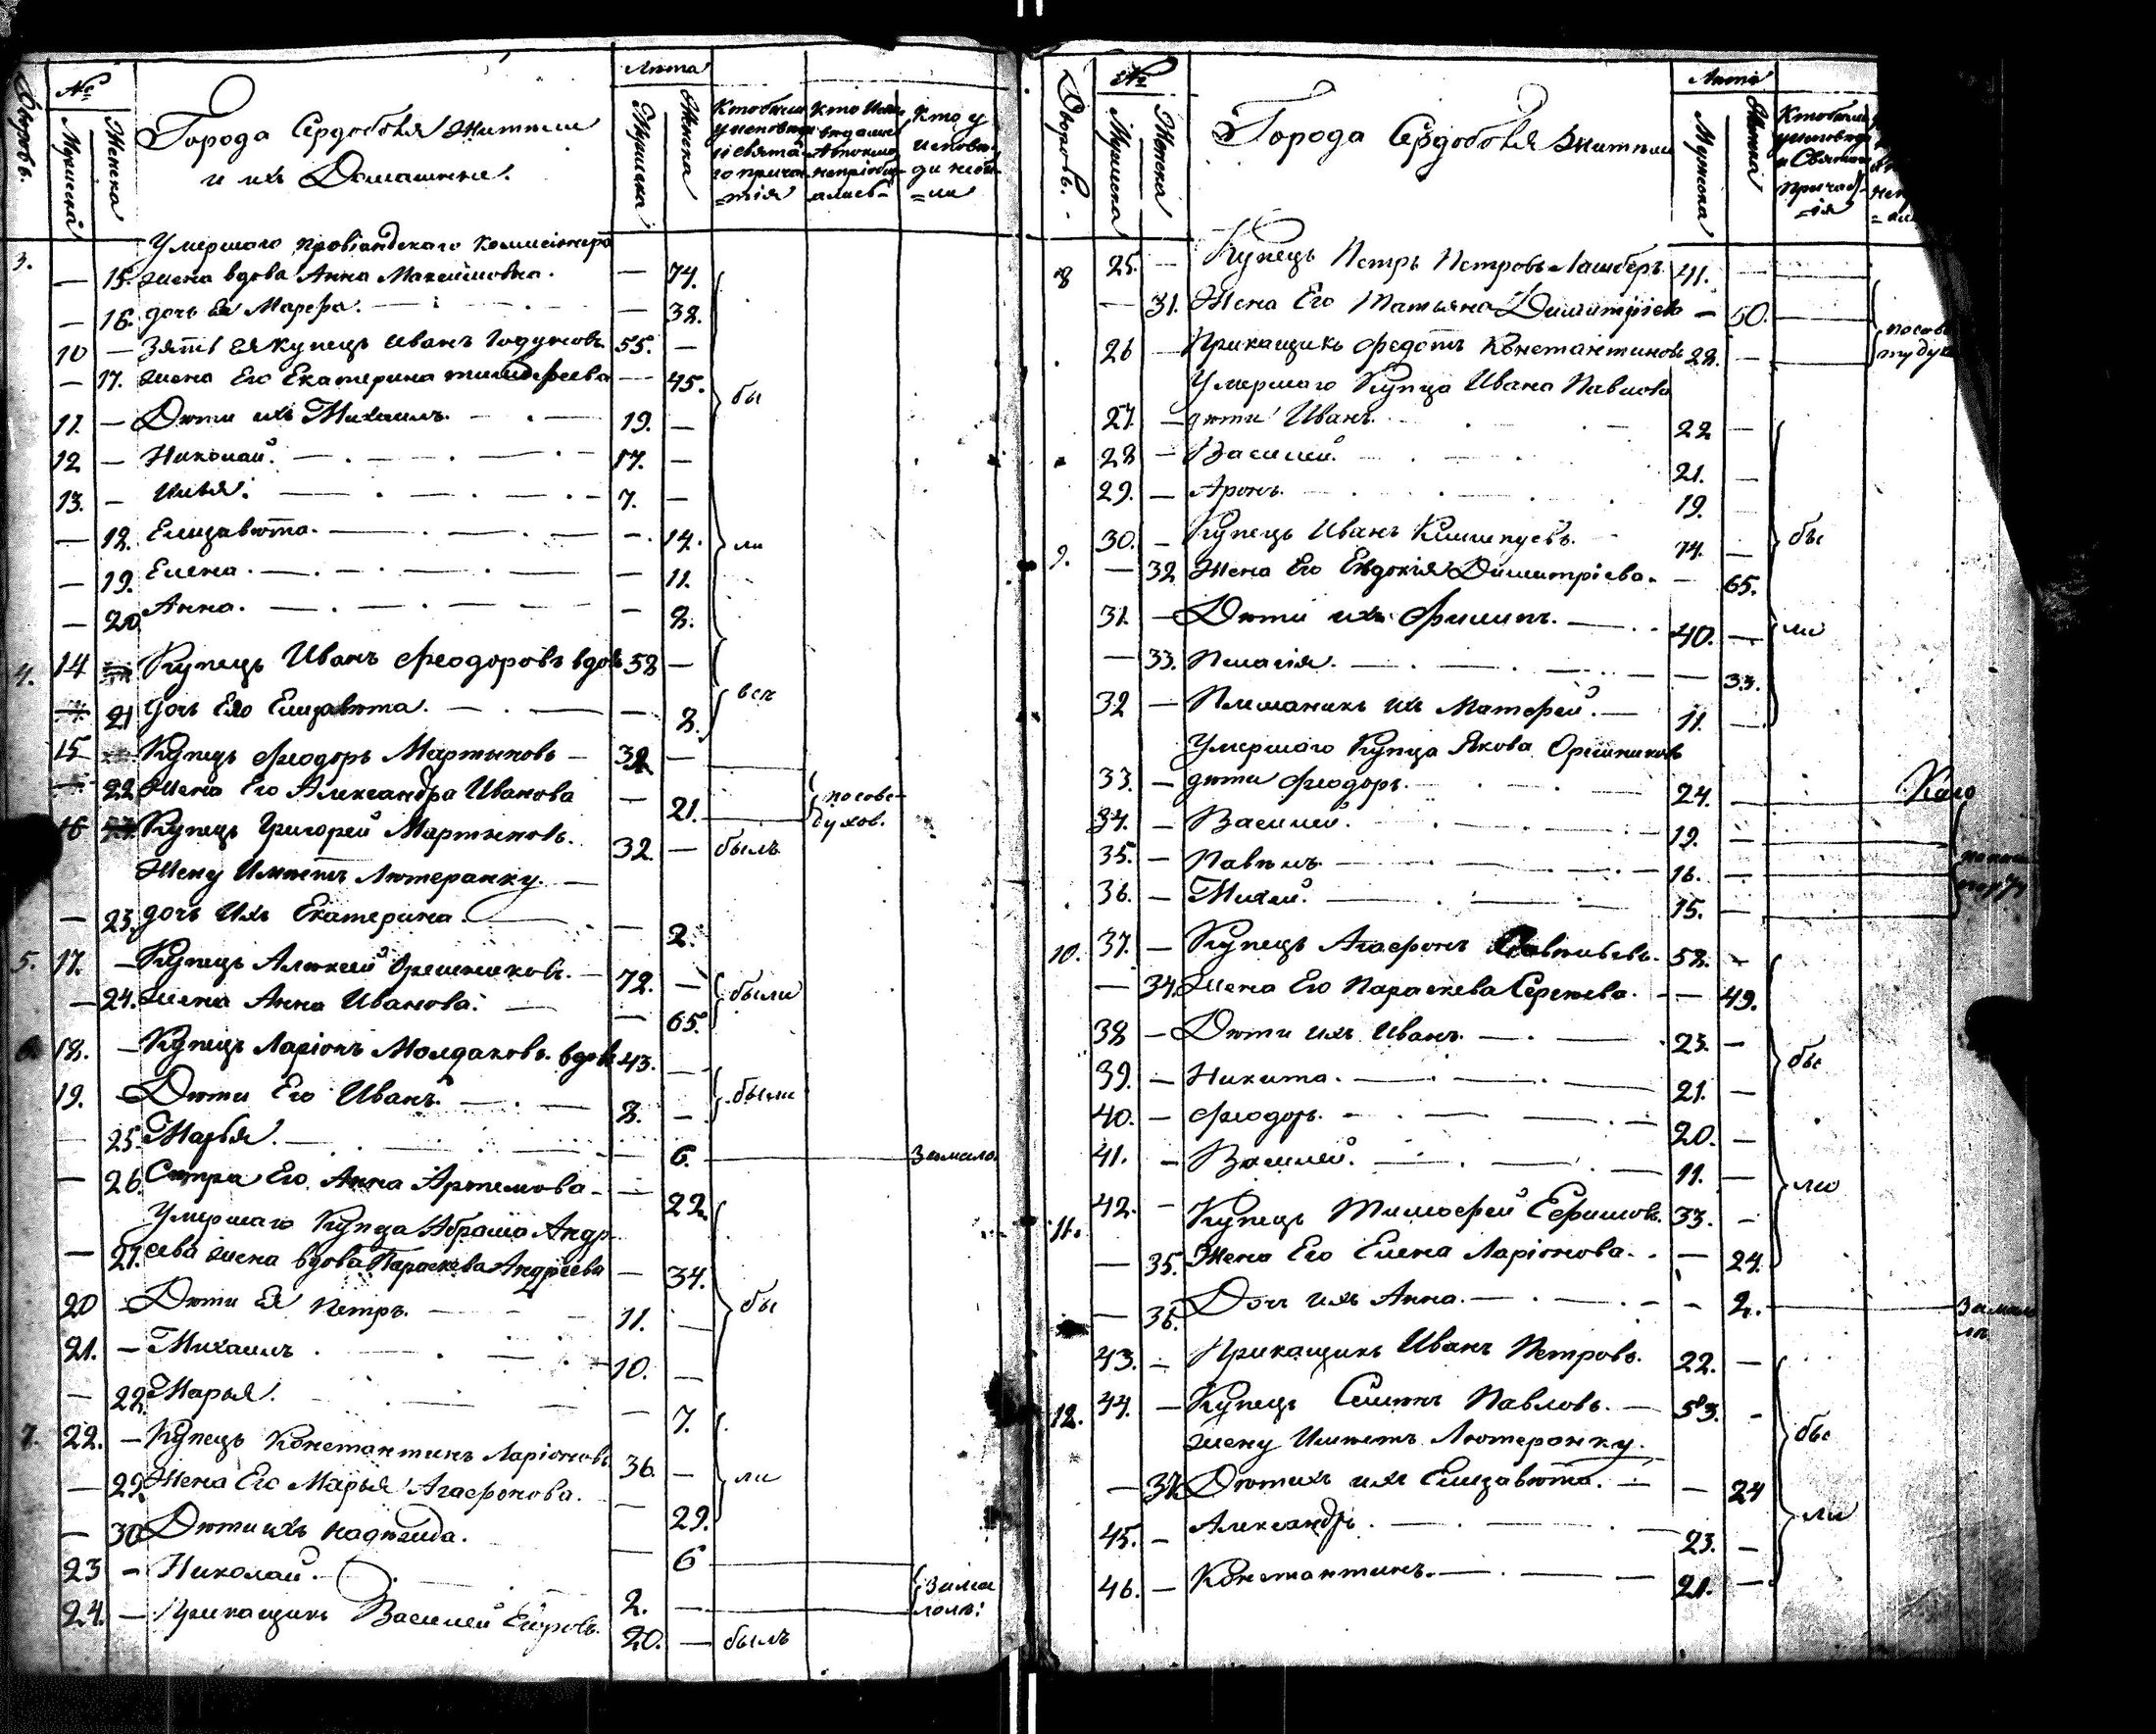 Дворовъ.
№
Мужеска
Женска
Города Сердоболя Жители
и ихъ Домашние.
Лѣта
Мужеска
Женска
Кто были
у исповѣди
и святаго
причас
=тія
Кто у
исповѣ
ди не бы
=ли
3.
Умершаго провіандскаго коммисіонера
— 15. жена вдова Анна Максимовна. — 74.
— 16. дочь Ея Марфа. — 38.
10 — Зять ея купецъ Иванъ Годуновъ 55. —
— 17. жена Его Екатерина Тимофеева — 45. бы
11. — Дѣти ихъ Михаилъ. 19. —
12 — Николай. 17. —
13. — Илья. 7. —
— 18. Елизавѣта. — 14. ли
— 19. Елена. — 11.
— 20 Анна. — 8.
4. 14 Купецъ Иванъ Феодоровъ вдов 58 —
— 21 дочь Его Елизавѣта. — 8. всѣ
15 Купецъ Феодоръ Мартыновъ — 38 —
— 22 Жена Его Александра Иванова — 21. по сове
духов.
16 Купецъ Григорей Мартыновъ. 32. — былъ
Жену Имѣетъ Лютеранку
— 23. дочь Ихъ Екатерина. — 2.
5. 17. — Купецъ Алексѣй Орешниковъ. 72. — были
— 24. жена Анна Иванова. — 65.
6. 18. — Купецъ Ларіонъ Молдаковъ. вдовъ 43. —
19. Дѣти Его Иванъ. 8. — были
— 25. Марья. — 6. За мало.
— 26. Сестра Его Анна Артемова — 22
Умершаго Купца Абрама Андр
— 27. еева жена вдова Параскева Андреева — 34.
20 — Дѣти Ея Петръ. 11. — бы
21. — Михаилъ 10. —
— 28. Марья. — 7.
7. 22. — Купецъ Константинъ Ларіоновъ 36. —
— 29. Жена Его Марья Агафонова. — 29. ли
— 30 Дѣти ихъ Надежда. — 6
23 — Николай. 2. — За мало
лѣт.
24. — Прикащикъ Василей Егоровъ. 20. — былъ
Дворовъ.
№
Мужеска
Женска
Города Сердоболя Жители
Лѣта
Мужеска
Женска
Кто были
у исповѣди
и Святаго
Причаст
=ія
8 25. — Купецъ Петръ Петровъ 41. —
— 31. Жена Его Татьяна Димитріева — 50.
26 — Прикащикъ Федотъ Константиновъ 28. —
Умершаго Купца Ивана Павлова
27. — дѣти Иванъ. 22 —
28 — Василей. 21. —
29. — Аронъ. 19.
9. 30. — Купецъ Иванъ 74. — бы
— 32 Жена Его Евдокія Димитріева. — 65.
31. — Дѣти ихъ Филипъ. 40. — ли
— 33. Пелагія. — 33.
32 — Племяникъ ихъ Матфей. 11. —
Умершаго Купца Якова Орешников
33. — дѣти Феодоръ. 24. —
34. — Василей. 19. —
35. — Павелъ 16. —
36. — Михей. 15. —
10. 37. — Купецъ Агафонъ 58. —
— 34. Жена Его Параскева Сергеева. — 49.
38 — Дѣти ихъ Иванъ. 23. — бы
39. — Никита. 21. —
40. — Феодоръ. 20. —
41. — Василей. 11. —
11. 42. — Купецъ Тимофей Ефимовъ. 33. — ли
— 35. Жена Его Елена Ларіонова. — 24.
— 36. Дочь ихъ Анна. — 2. За мало
лѣ
43. — Прикащикъ Иванъ Петровъ. 22. —
12. 44. — Купецъ Семенъ Павловъ. 53. —
жену Имѣетъ Лютеранку. бы
— 37. Дѣтихъ ихъ Елизавѣта. — 24
45. — Александръ. 23. — ли
46. — Константинъ. 21. —